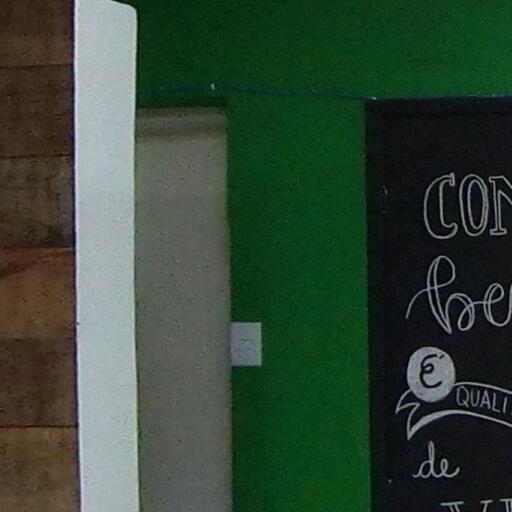 CON
be
É
QUALI
de